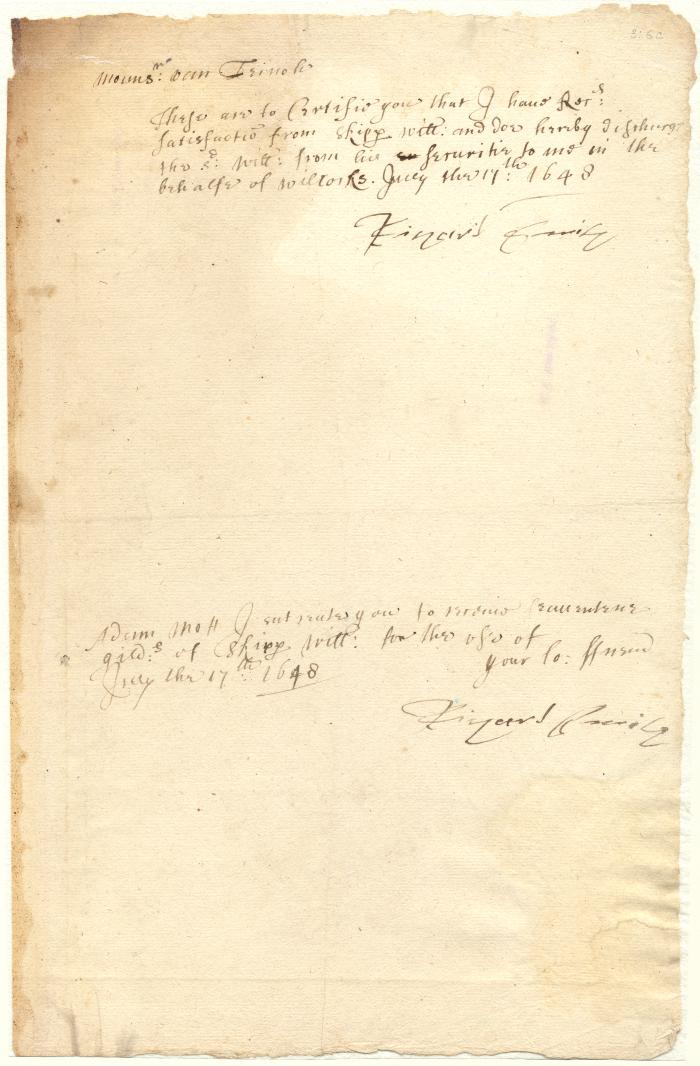 mouns:r van Teinoh
These are to Certifie you that I have Rec:d
satisfactiō from Skipp Will: and doe hereby discharge
the sd: Will: from his securitie to me in the
behalfe of Willcocks. July the 17th: 1648
Richard Smith
Adam Mott I entreate you to receive seauentene
gild:s of Skipp Will: for the use of
your lo: ffriend
July the 17th: 1648
Richard Smith